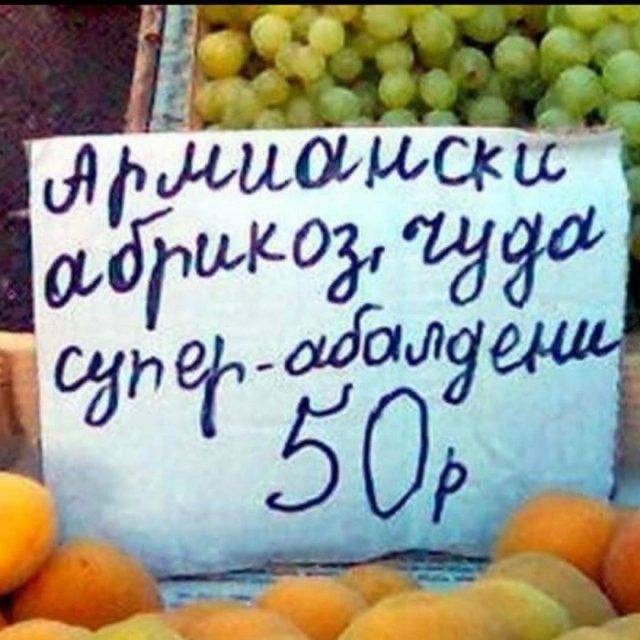 Армиански
абрикоз, чуда
супер-абалдени
50р